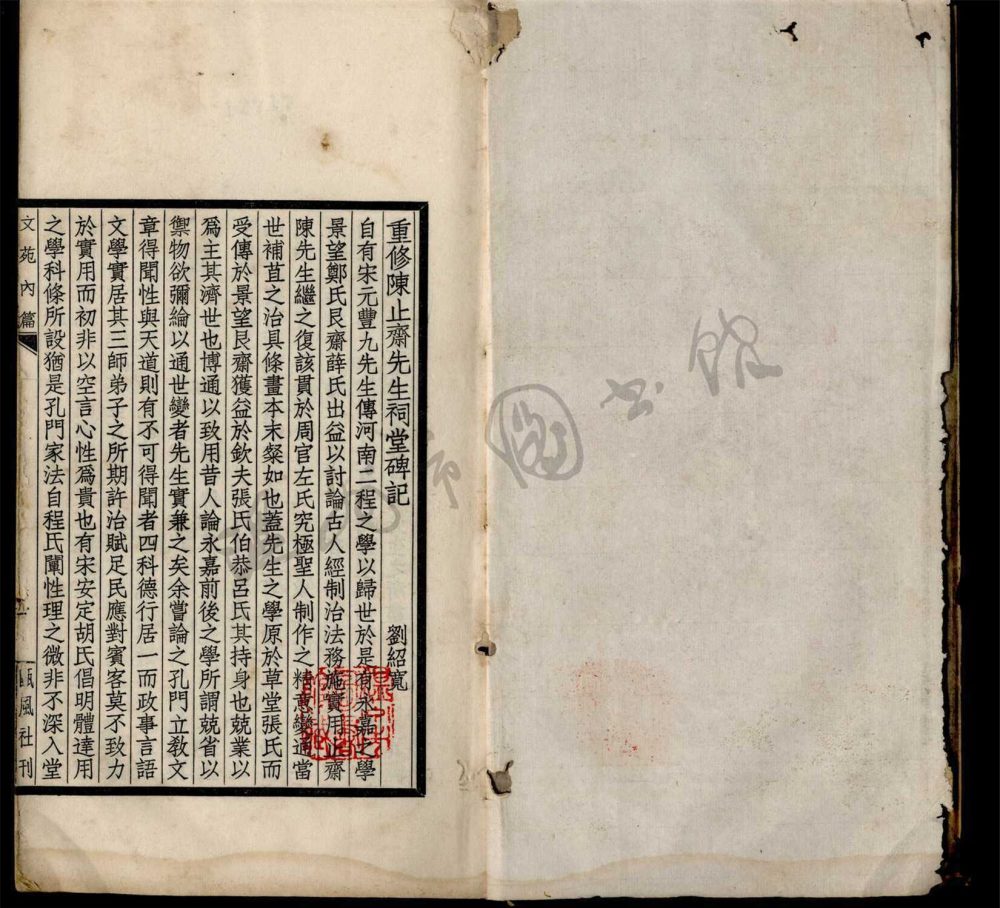 重修陳止齋先生祠堂碑記
劉紹寬
自有宋元豐九先生傳河南二程之學以歸世於是有永嘉之學
景望鄭氏艮齋薛氏出益以討論古人經制治法務施實用止齋
陳先生繼之復該貫於周官左氏究極聖人制作之精意變通當
世補苴之治具條畫本末粲如也蓋先生之學原於草堂張氏而
受傳於景望艮齋獲益於欽夫張氏伯恭呂氏其持身也兢業以
爲主其濟世也博通以致用昔人論永嘉前後之學所謂兢省以
禦物欲彌綸以通世變者先生實兼之矣余嘗論之孔門立敎文
章得聞性與天道則有不可得聞者四科德行居一而政事言語
文學實居其三師弟子之所期許治賦足民應對賓客莫不致力
於實用而初非以空言心性爲貴也有宋安定胡氏倡明體達用
之學科條所設猶是孔門家法自程氏闡性理之微非不深入堂
文苑內篇
甌風社刊
圖書館